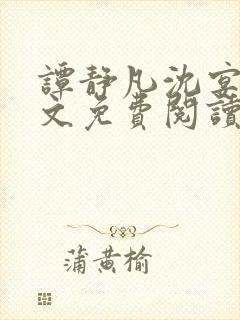 譚靜凡沈宴
文免費閱讀
蒲黄榆